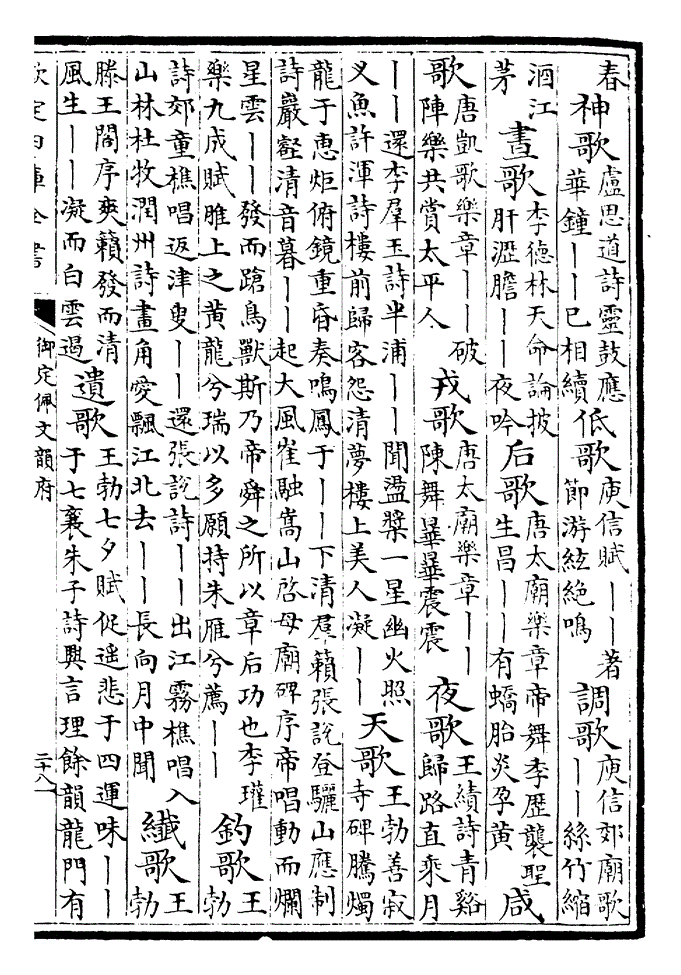 春神歌盧思道詩靈鼓應華鐘丨丨已相續低歌庾信賦丨丨著節游絃絶鳴調歌庾信郊廟歌丨丨絲竹縮
酒江茅晝歌李德林天命論披肝瀝膽丨丨夜吟后歌唐太廟樂章帝舞季歴襲聖生昌丨丨有蟜胎炎孕黄咸
歌唐凱歌樂章丨丨破陣樂共賞太平人戎歌唐太廟樂章丨丨陳舞畢畢震震夜歌王績詩青谿歸路直乘月
丨丨還李羣玉詩半浦丨丨聞盪槳一星幽火照叉魚許渾詩樓前歸客怨清夢樓上美人凝丨丨天歌王勃善寂寺碑騰燭
龍于恵炬俯鏡重昏奏鳴鳳于丨丨下清羣籟張說登驪山應制詩巖壑清音暮丨丨起大風崔融嵩山啟母廟碑序帝唱動而爛
星雲丨丨發而蹌鳥獸斯乃帝舜之所以章后功也李瓘樂九成賦雎上之黄龍兮瑞以多願持朱雁兮薦丨丨釣歌王勃
詩郊童樵唱返津叟丨丨還張說詩丨丨出江霧樵唱入山林杜牧潤州詩畫角愛飄江北去丨丨長向月中聞纖歌王勃
滕王閣序爽籟發而清風生丨丨凝而白雲遏遺歌王勃七夕賦促遥悲于四運味丨丨于七襄朱子詩興言理餘韻龍門有
欽定四庫全書
御定佩文韻府
二十八